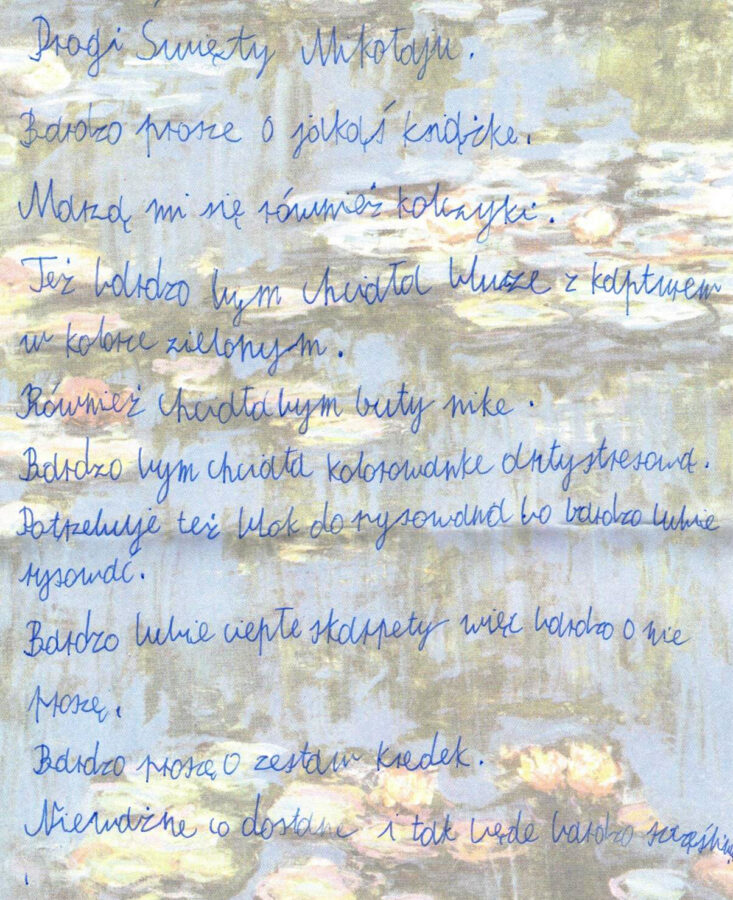 Drogi Święty Mikołaju.
Bardzo prosze o jakąś książke.
Marzą mi się również kolczyki.
Też bardzo bym chciała bluze z kapturem
w kolorze zielonym.
Również chciałabym buty nike.
Bardzo bym chciała kolorowanke antystresową.
Potrzebuje też blok do rysowania bo bardzo lubie
rysować.
Bardzo lubie ciepłe skarpety więc bardzo o nie
proszę.
Bardzo proszę o zestaw kredek.
Nieważne co dostane i tak będe bardzo